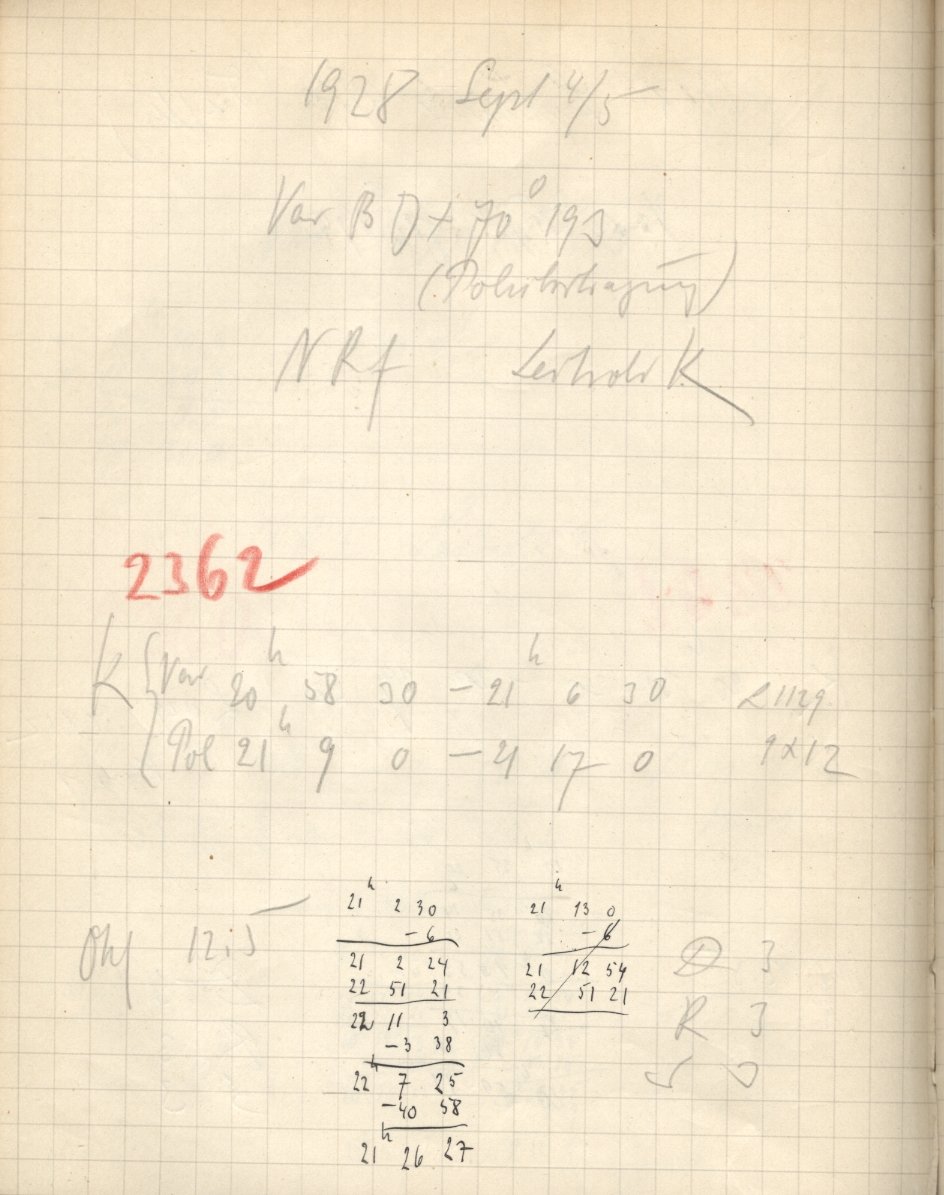 1928 Sept 4/5
Var BD + 70° 193
(Polübertragung)
NRf Leitrohr K
2362
K { Var 20h 58 30 – 21h 6 30 L1129
Pol 21h 9 0 – 21 17 0 9x12
Obj 12.5
21h 2 30
– 6
21 2 24
22 51 21
22 11 3
–3 38
22h 7 25
–40 58
21h 26 27
21h 13 0
– 6
21 12 54
22 51 21
D 3
R 3
0